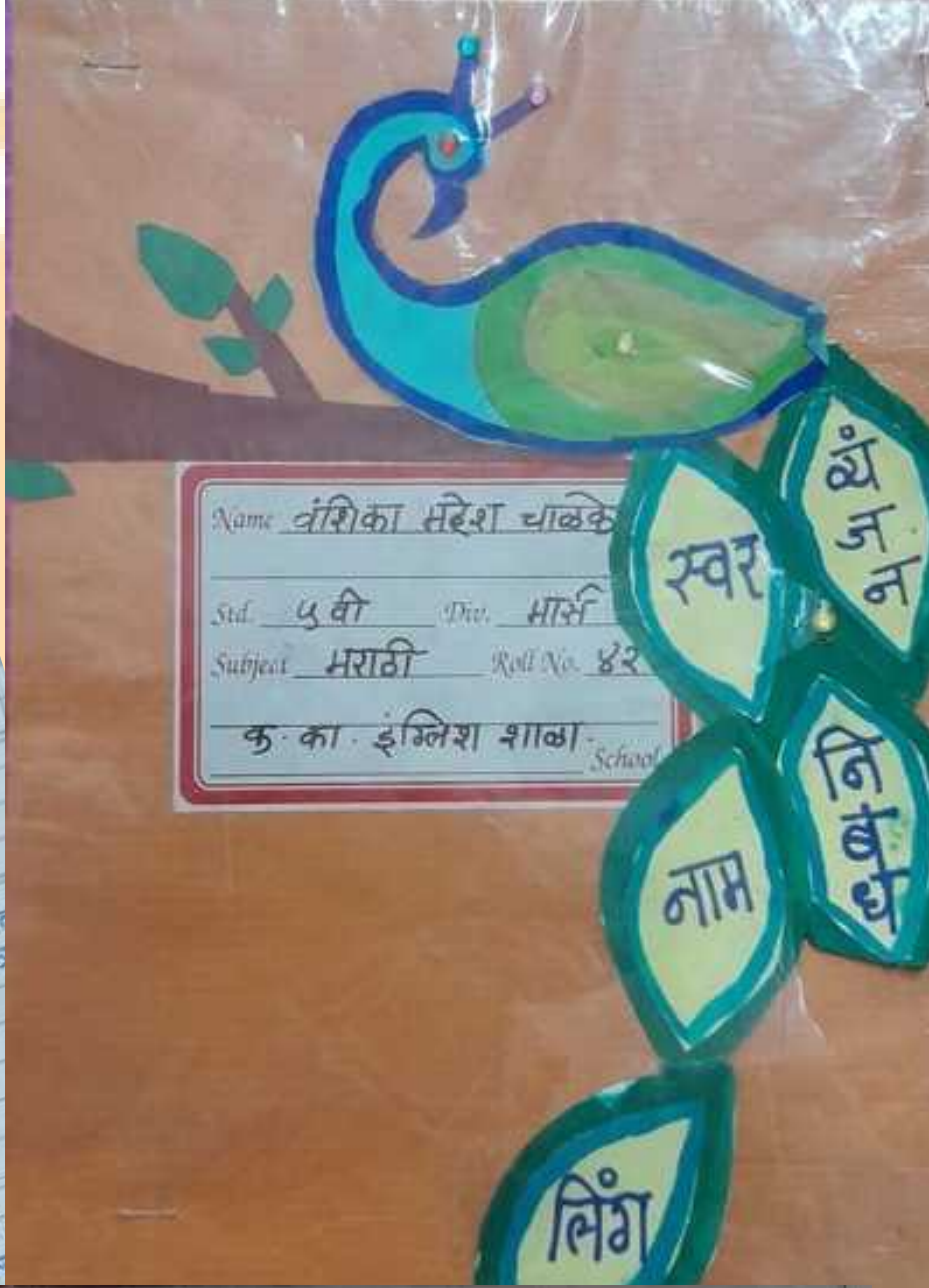 Name वंशिका महेश चाळके
Std. ५ वी Div. मार्स
Subject मराठी Roll No. ४२
क. का. इंग्लिश शाळा.
School
स्वर
व्यंजन
नाम
निबंध
लिंग